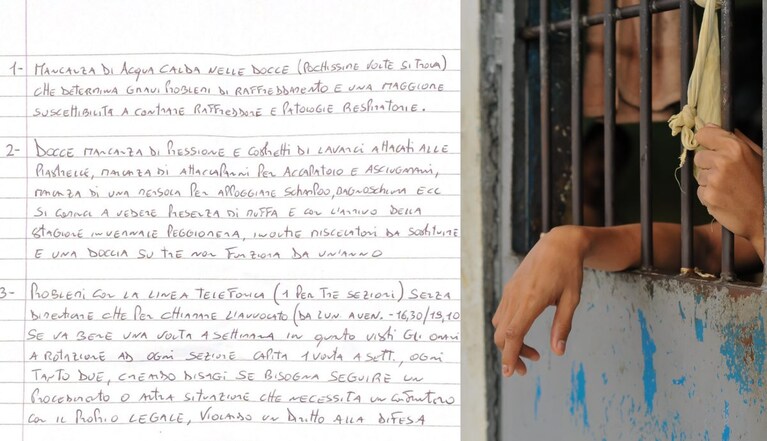 1- MANCANZA DI ACQUA CALDA NELLE DOCCE (POCHISSIME VOLTE SI TROVA)
CHE DETERMINA GRAVI PROBLEMI DI RAFFREDDAMENTO E UNA MAGGIORE
SUSCETTIBILITA A CONTRARRE RAFFREDDORE E PATOLOGIE RESPIRATORIE.
2- DOCCE MANCANZA DI PRESSIONE E COSTRETTI DI LAVARCI ATTACCATI ALLE
PIASTRELLE, MANCANZA DI ATTACCAPANNI PER ACCAPPATOIO E ASCIUGAMANI,
MANCANZA DI UNA MENSOLA PER APPOGGIARE SCHAMPOO, BAGNOSCHIUMA ECC
SI COMINCIA A VEDERE PRESENZA DI MUFFA E CON L'ARRIVO DELLA
STAGIONE INVERNALE PEGGIORERA, INOLTRE MISCELATORI DA SOSTITUIRE
E UNA DOCCIA SU TRE NON FUNZIONA DA UN'ANNO
3- PROBLEMI CON LA LINEA TELEFONICA (1 PER TRE SEZIONI) SENZA
DIMENTICARE CHE PER CHIAMARE L'AVVOCATO (DA LUN. A VEN. - 16,30/19,10
SE VA BENE UNA VOLTA A SETTIMANA IN QUANTO VISTI GLI ORARI
A ROTAZIONE AD OGNI SEZIONE CAPITA 1 VOLTA A SETT., OGNI
TANTO DUE, CREANDO DISAGI SE BISOGNA SEGUIRE UN
PROCEDIMENTO O ALTRA SITUAZIONE CHE NECESSITA UN CONFRONTO
CON IL PROPRIO LEGALE, VIOLANDO UN DIRITTO ALLA DIFESA